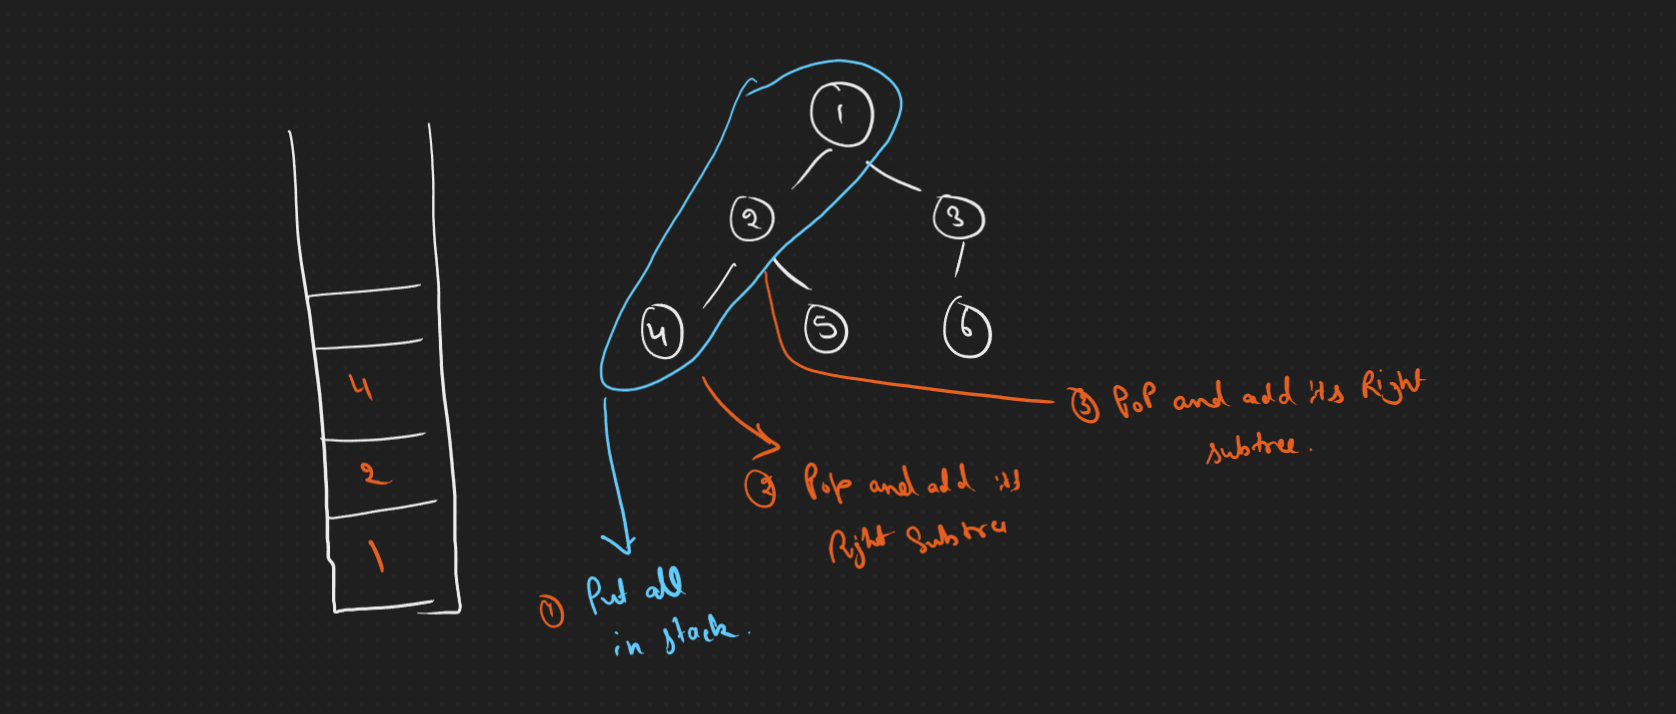 1
2
3
4
5
6
4
2
1
① Put all
in stack.
② Pop and add its
Right Subtree
③ PoP and add its Right
subtree.